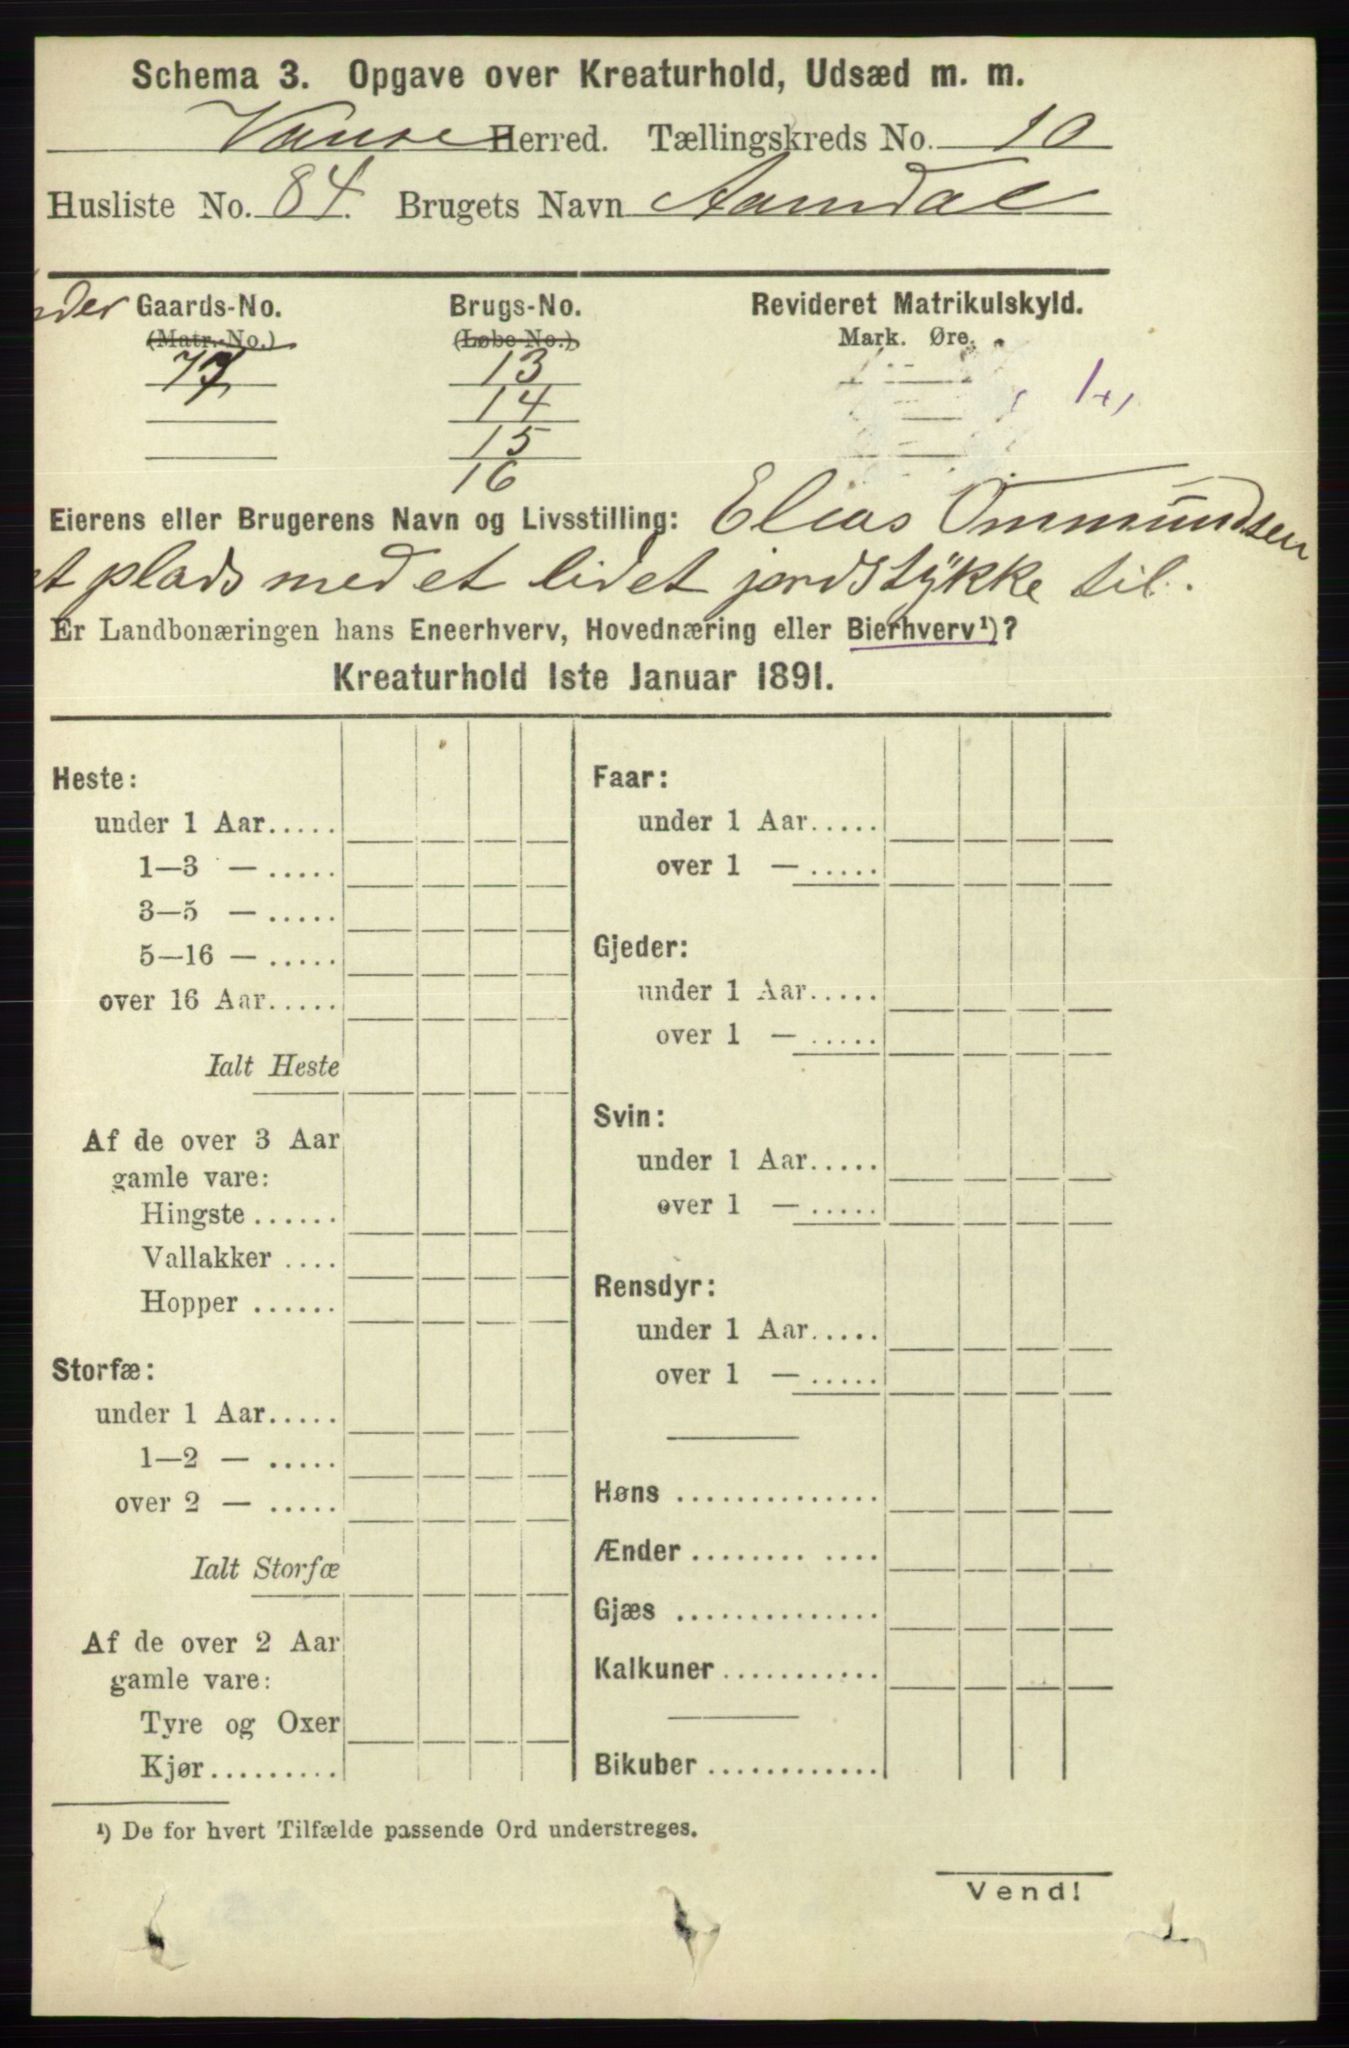 Schema 3. Opgave over Kreaturhold, Udsæd m. m.
Vanse Herred. Tællingskreds No. 10
Husliste No. 84. Brugets Navn Aamdal
nder Gaards-No. Brugs-No. Revideret Matrikulskyld.
(Matr.-No.) (Løbe-No.) Mark. Øre.
77, 13
14
15
16
Eierens eller Brugerens Navn og Livsstilling: Elias Ommundsen
et plads med et lidet jordstykke til.
Er Landbonæringen hans Eneerhverv, Hovednæring eller Bierhverv¹)?
Kreaturhold 1ste Januar 1891.
Heste:
under 1 Aar.....
1—3 — .....
3—5 — .....
5—16 — .....
over 16 Aar.....
Ialt Heste
Af de over 3 Aar
gamle vare:
Hingste ......
Vallakker ....
Hopper ......
Storfæ:
under 1 Aar.....
1—2 — .....
over 2 — .....
Ialt Storfæ
Af de over 2 Aar
gamle vare:
Tyre og Oxer
Kjør.........
Faar:
under 1 Aar.....
over 1 — .....
Gjeder:
under 1 Aar.....
over 1 — .....
Svin:
under 1 Aar.....
over 1 — .....
Rensdyr:
under 1 Aar.....
over 1 — .....
Høns ..............
Ænder........ ....
Gjæs ..............
Kalkuner...........
Bikuber ............
¹) De for hvert Tilfælde passende Ord understreges.
Vend!